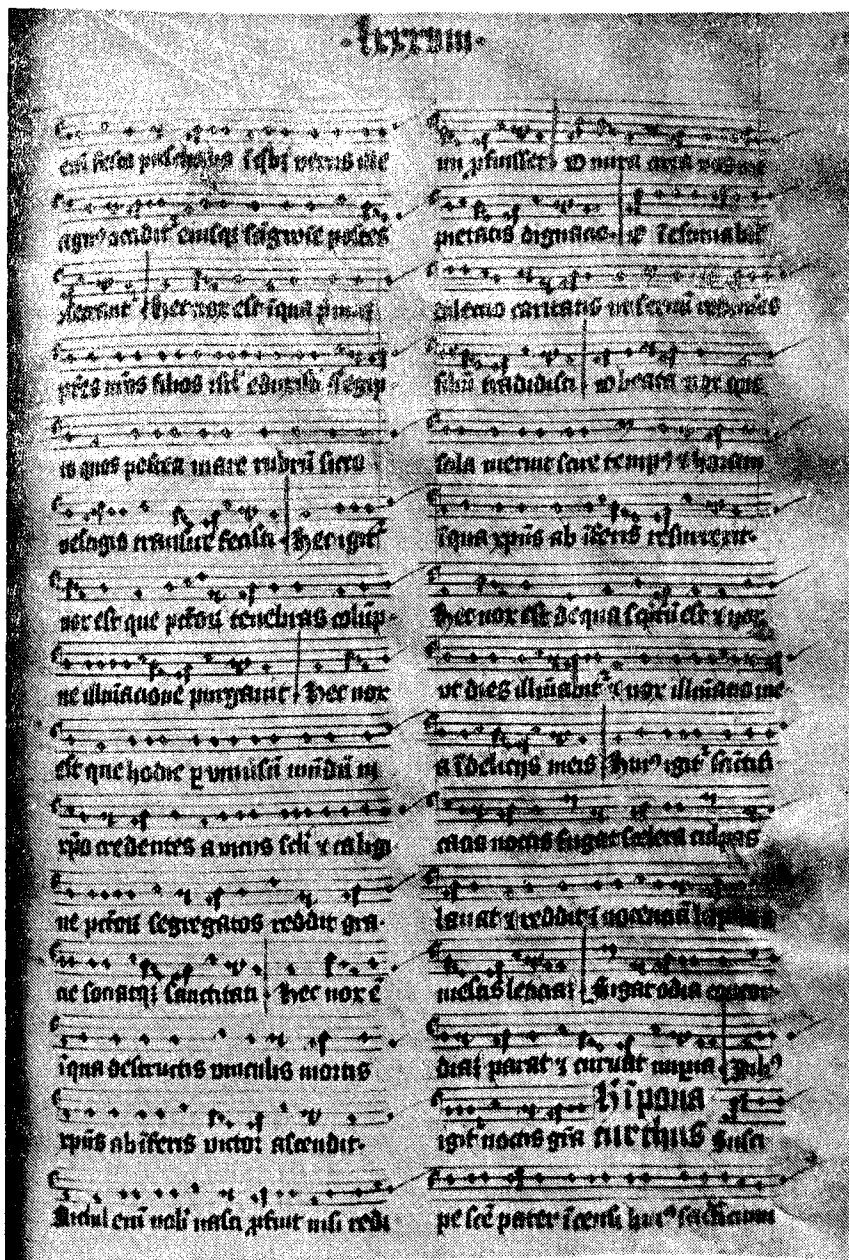 ·lxxxxviii·
eni festa paschalia ī qbȝ verus ille
agnus occidit᷑ eiusqȝ sāguīe postes
ꝯsecrant᷑ Hec nox est īqua pͥmuȝ
pr̄es nr̄os filios isrl̄ eductos d̓ egip
to quos postea mare rubrū sicco
vestigio transire fecisti Hec igit᷑
nox est que pctōꝝ tenebras colūp·
ne illuīacione purgauit Hec nox
est que hodie ꝑ vniuersū mūdū in
xpo credentes a viciis scl̄i ⁊ caligi
ne pctōꝝ segregatos reddit gra·
cie sociatqȝ sanctitati Hec nox ē
īqua destructis vinculis mortis
xpūs ab īferis victor ascendit·
Nichil eni nobȝ nasci ꝓfuit nisi redi
mi ꝓfuisset O mira circa nos tue
pietatis dignatio O īestimabil̓
dilectio caritatis ut seruū redīeres
filiū tradidisti O beata nox que
sola meruit scire tempꝰ ⁊ horam
īqua xpūs ab īferis resurrexit·
Hec nox est de qua scͥptū est ⁊ nox
ut dies illuīabit᷑ ⁊ nox illuīatio me
a ī deliciis meis Huiꝰ igit᷑ sāctifi
catio noctis fugat scelera culpas
lauat ⁊ reddit īnocenciā lapsis ⁊
mestis leticiaȝ Fugat odia concor·
diaȝ parat ⁊ curuat imperia Inhͨ
Hͥ īpona
igit᷑ noctis gr̄a tur thus Susci
pe sc̄e pater īcensi huiꝰ sacͥficium